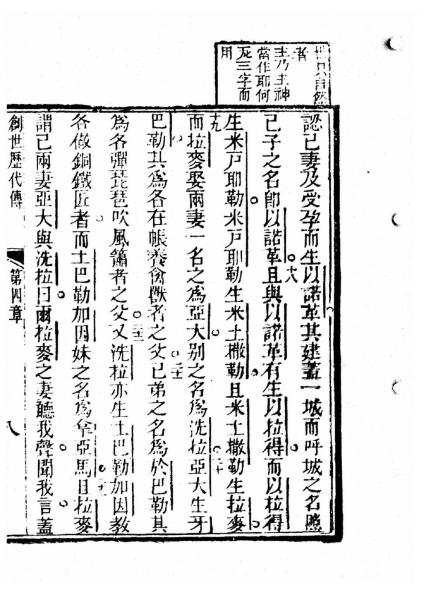 者
主乃主神
當作耶何
死三字而
用
認己妻及受孕而生以諾革其建蓋一城而呼城之名照
己子之名即以諾革十八且與以諾革有生以拉得而以拉得
生米戶耶勒米戶耶勒生米土撒勒且米土撒勒生拉麥
十九而拉麥娶兩妻一名之為亞大別之名為洗拉二十亞大生牙
巴勒其為各在帳養禽獸者之父二十一己弟之名為於巴勒其
為各彈琵琶吹風簫者之父二十二又洗拉亦生土巴勒加因教
各做銅鐵匠者而土巴勒加因妹之名為拿亞馬二十三且拉麥
謂己兩妻亞大與洗拉曰爾拉麥之妻聽我聲聞我言蓋
創世歷代傳 第四章 八